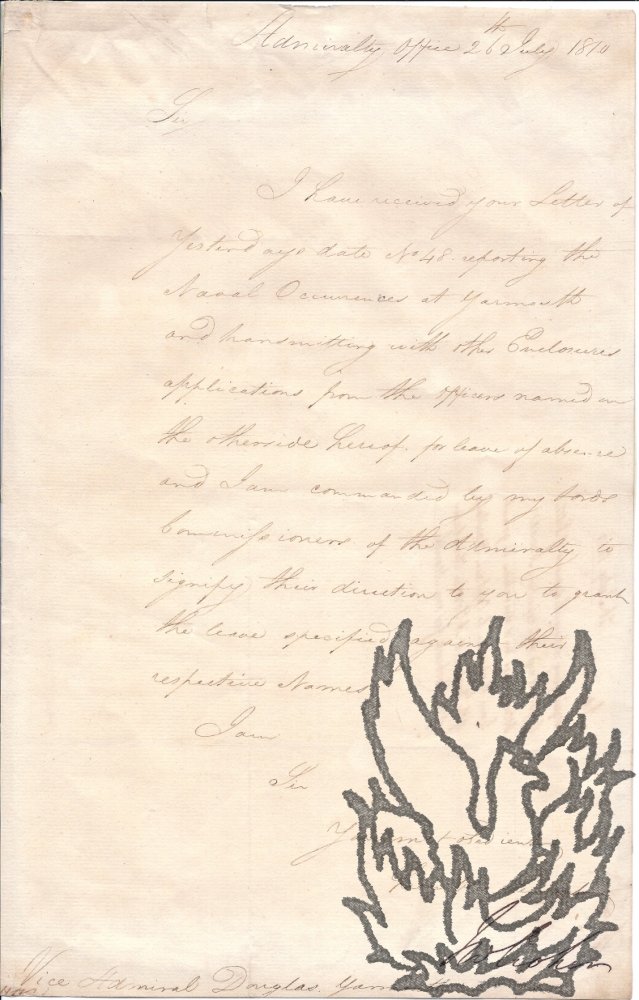 Admiralty Office 26th July 1810
Sir
I have received your Letter of
Yesterdays date No 48. reporting the
Naval Occurrences at Yarmouth
and transmitting with other Enclosures
applications from the officers named on
the otherside hereof. for leave of absence
and I am commanded by my Lords
Commissioners of the Admiralty to
signify their direction to you to grant
the leave specified against their
respective Names
I am
Sir
Your most obedient
Vice Admiral Douglas Yarmouth